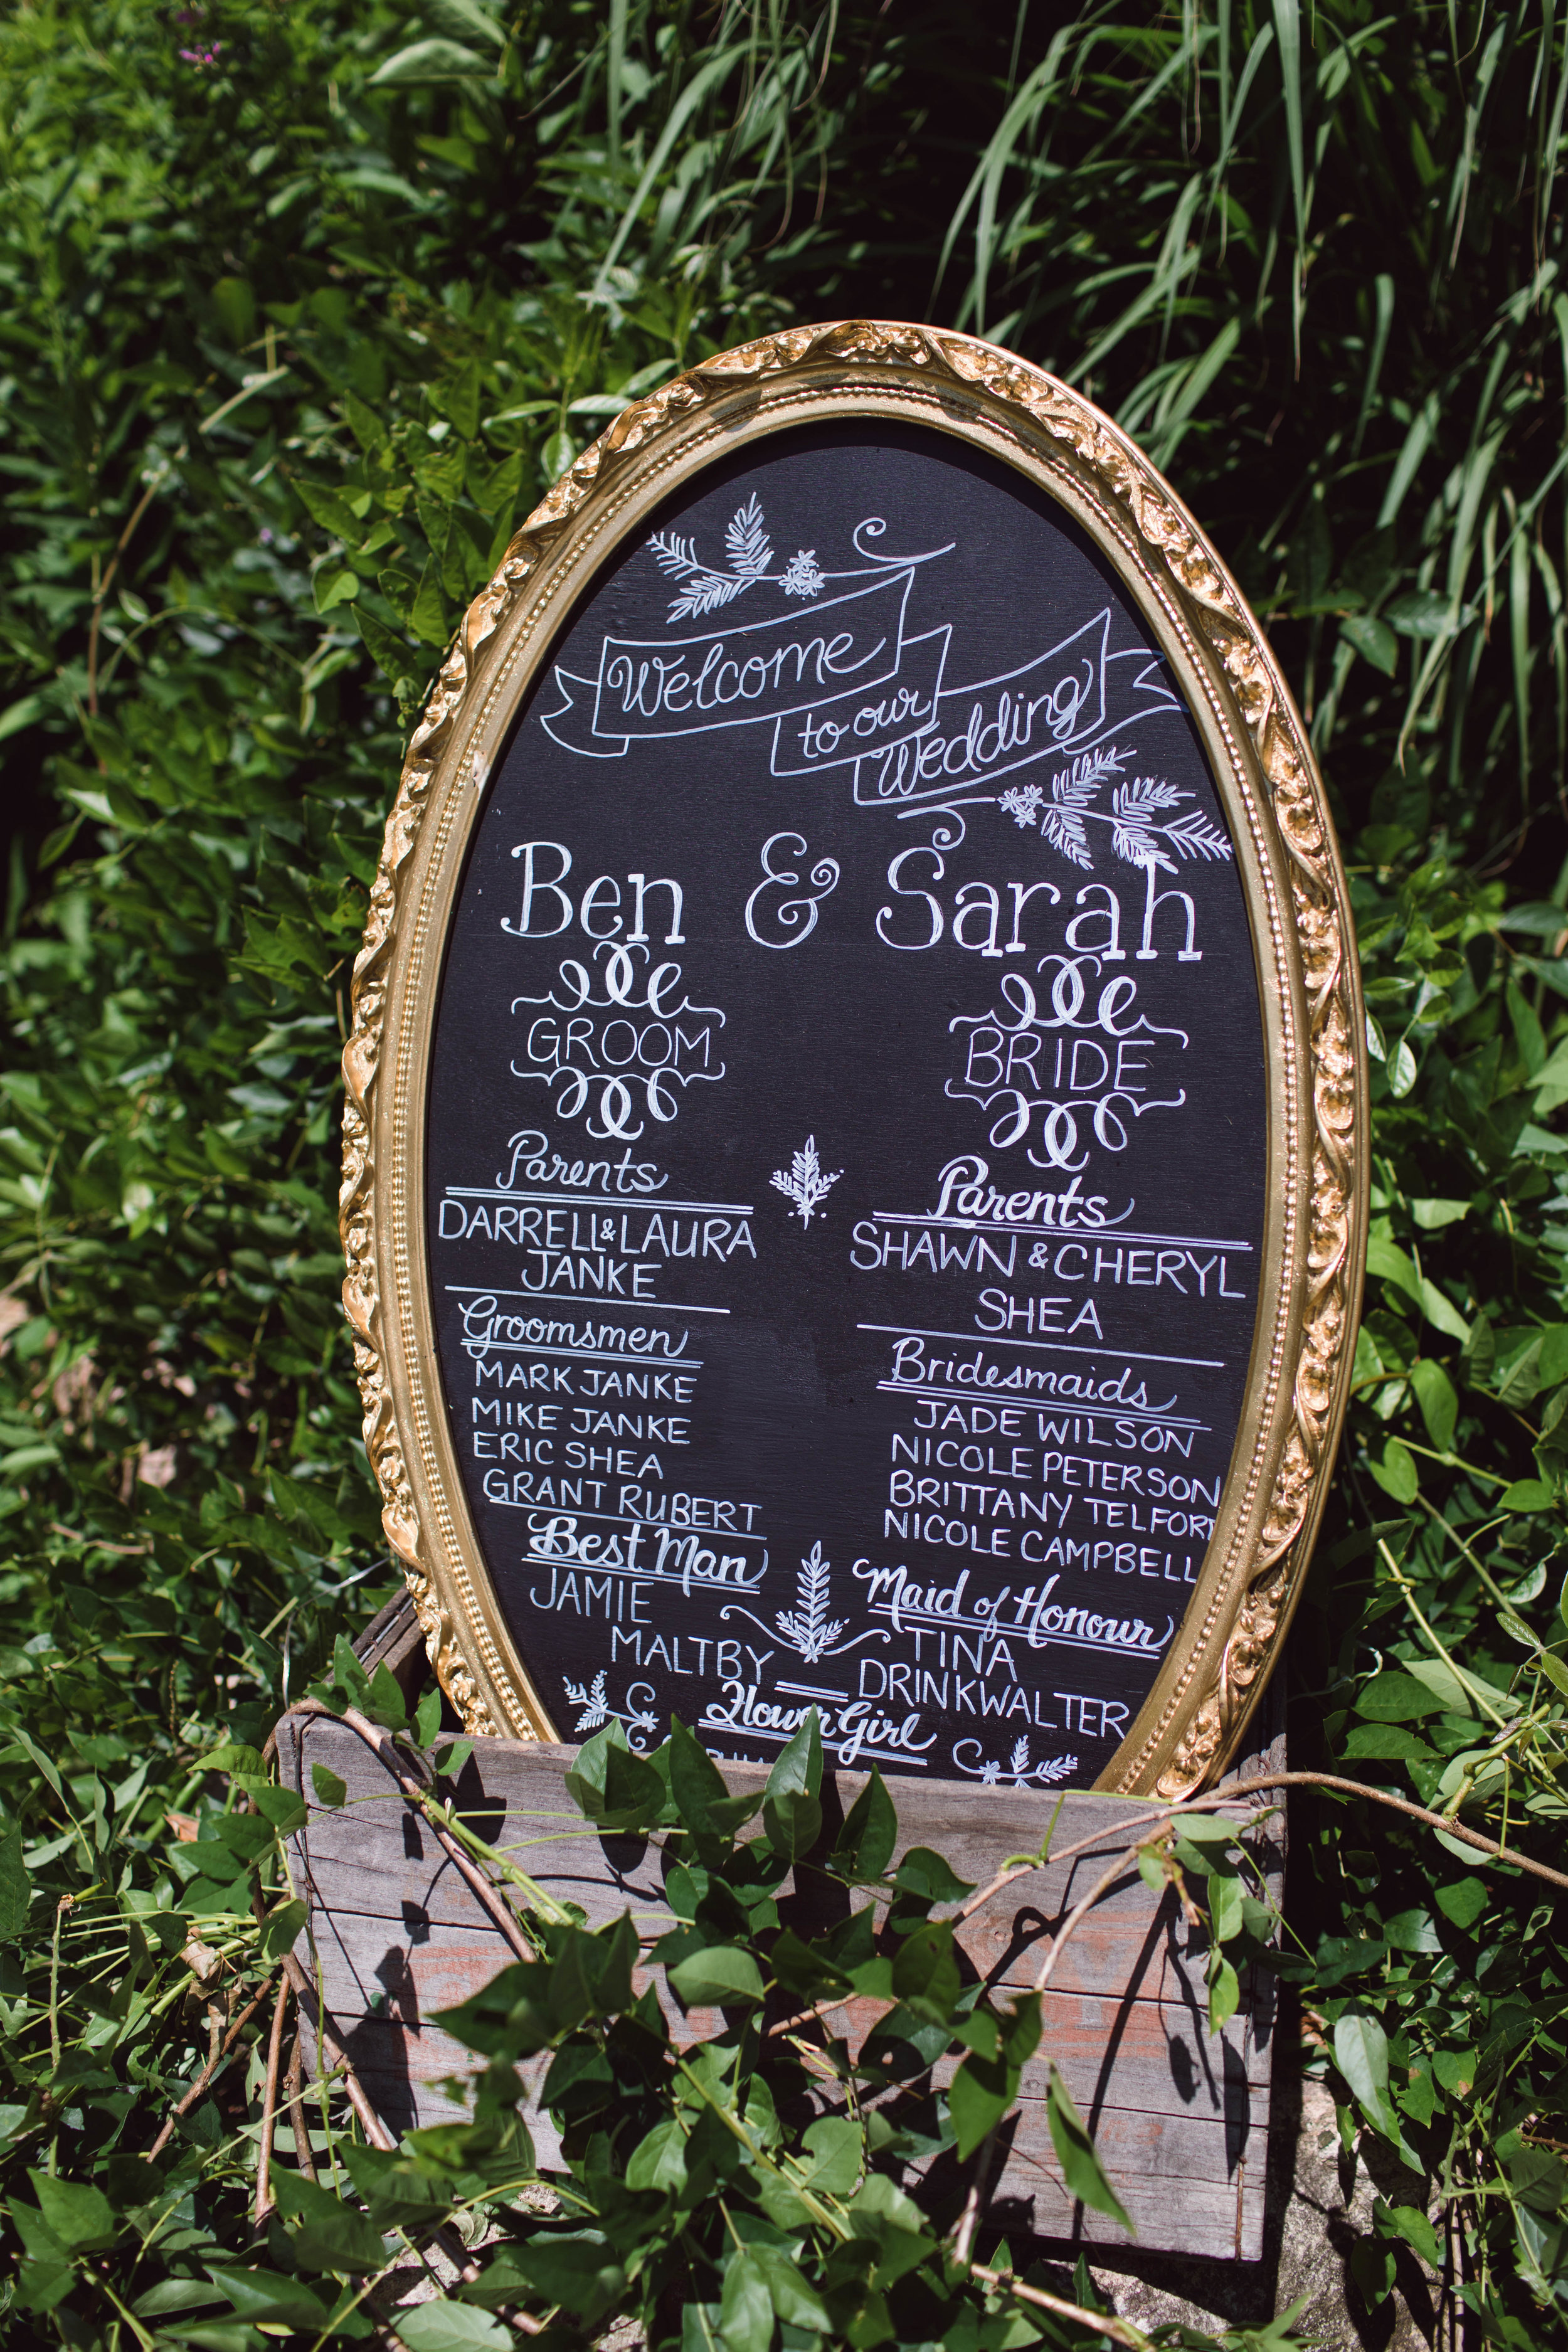 Welcome
to our
Wedding
Ben & Sarah
GROOM
BRIDE
Parents
DARRELL & LAURA
JANKE
Groomsmen
MARK JANKE
MIKE JANKE
ERIC SHEA
GRANT RUBERT
Best Man
JAMIE
MALTBY
Parents
SHAWN & CHERYL
SHEA
Bridesmaids
JADE WILSON
NICOLE PETERSON
BRITTANY TELFORD
NICOLE CAMPBELL
Maid of Honour
TINA
DRINKWALTER
Flower Girl